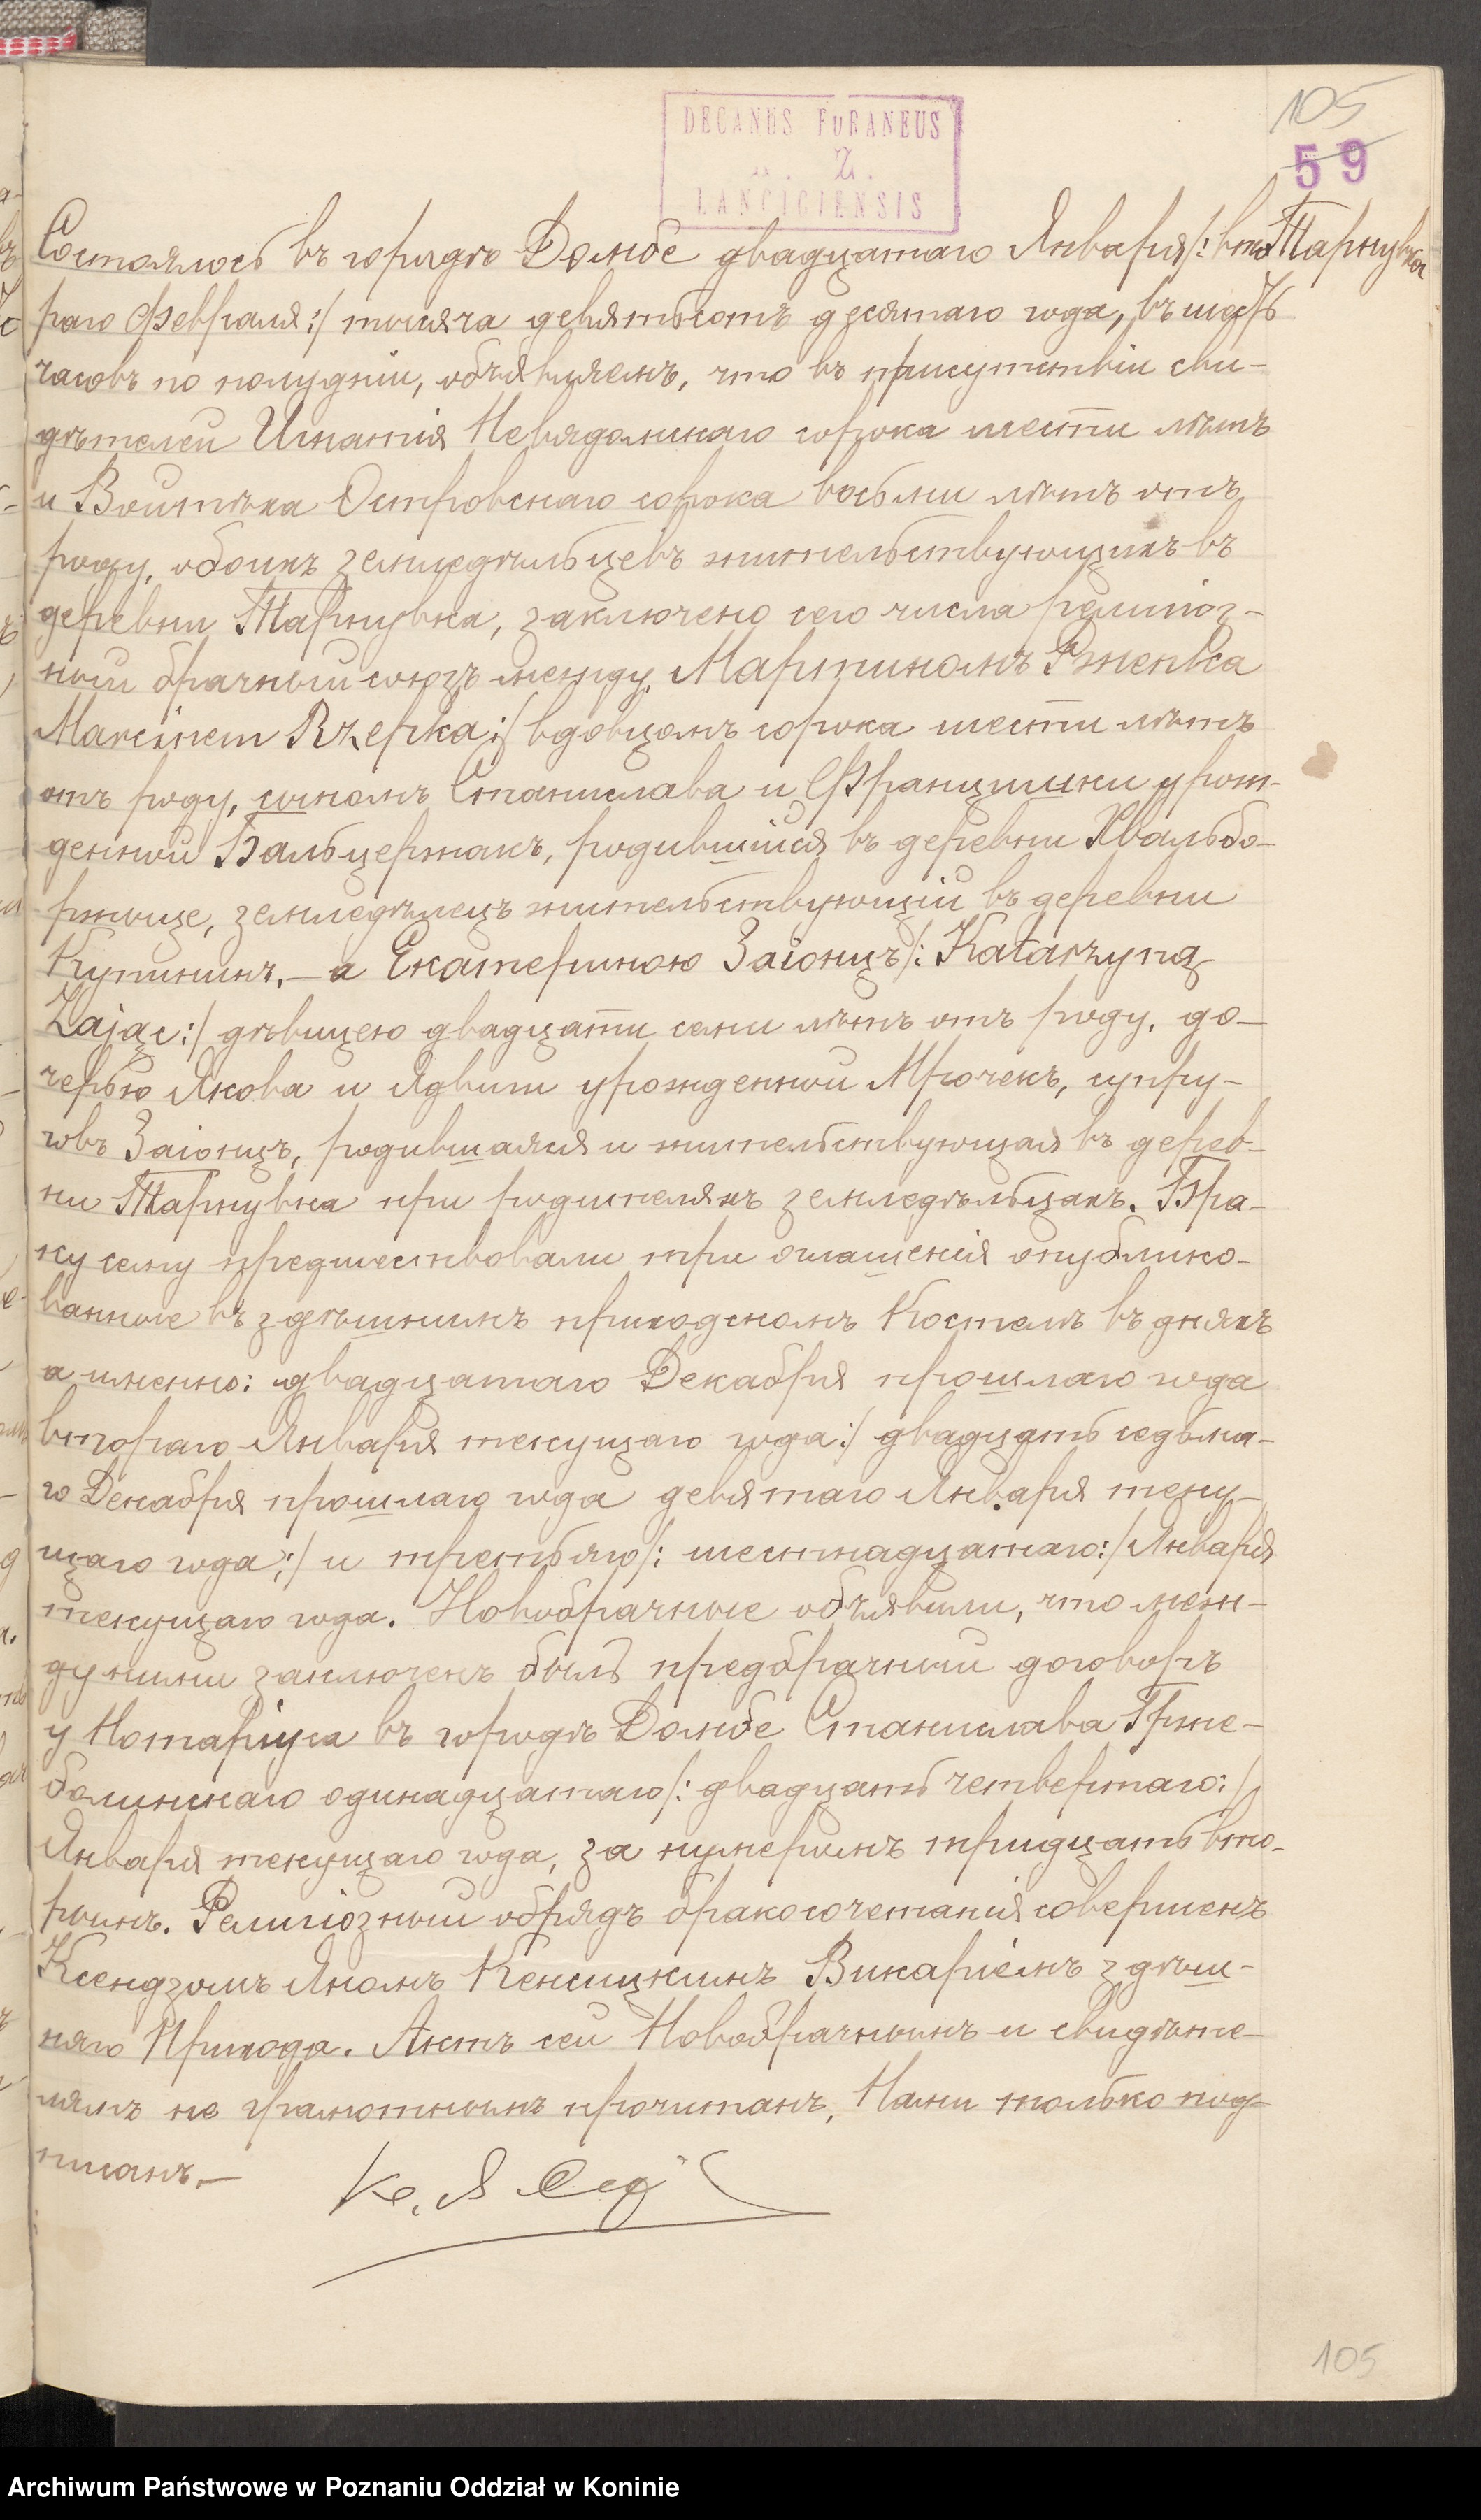 105
59
DECANUS FORANEUS
LANCICIENSIS
Тарнувка
Состоялось въ городѣ Домбе двадцатаго Января /: вто
раго Февраля :/ тысяча девятьсотъ десятаго года, въ шесть
часовъ по полудніи, объявляемъ, что въ присутствіи сви-
дѣтелей Игнатія Невядомскаго сорока шести лѣтъ
и Войтѣха Островскаго сорока восьми лѣтъ отъ
роду, обоихъ земледѣльцевъ жительствующихъ въ
деревни Тарнувка, заключено сего числа религіоз-
ный брачный союзъ между Мартиномъ Рженпка
Marcinem Rzepka :/ вдовцомъ сорока шести лѣтъ
отъ роду, сыномъ Станислава и Францишки урож-
денной Бальцержакъ, родившійся въ деревни Хвальбо-
ржице, земледѣлецъ жительствующій въ деревни
Купининъ, — а Екатериною Заіонцъ /: Katarzyną
Zając :/ дѣвицею двадцати семи лѣтъ отъ роду, до-
черью Якова и Ядвиги урожденной Мрочекъ, супру-
говъ Заіонцъ, родившаяся и жительствующая въ дерев-
ни Тарнувка при родителяхъ земледѣльцахъ. Бра-
ку сему предшествовали три оглашенія опублико-
ванные въ здѣшнимъ приходскомъ Костелѣ въ дняхъ
а именно: двадцатаго Декабря прошлаго года
втораго Января текущаго года :/ двадцать седьма-
го Декабря прошлаго года девятаго Января теку-
щаго года :/ и третьяго /: шестнадцатаго :/ Января
текущаго года. Новобрачные объявили, что меж-
ду ними заключенъ былъ предбрачный договоръ
у Нотаріуса въ городѣ Домбе Станислава Грже-
одинадцатаго /: двадцать четвертаго :/
Января текущаго года, за нумеромъ тридцать вто-
рымъ. Религіозный обрядъ бракосочетанія совершенъ
Ксендзомъ Яномъ Кенсицкимъ Викаріемъ здѣш-
няго Прихода. Актъ сей Новобрачнымъ и свидѣте-
лямъ не грамотнымъ прочитанъ, Нами только под-
писанъ. —
Кс. Я
105
Archiwum Państwowe w Poznaniu Oddział w Koninie